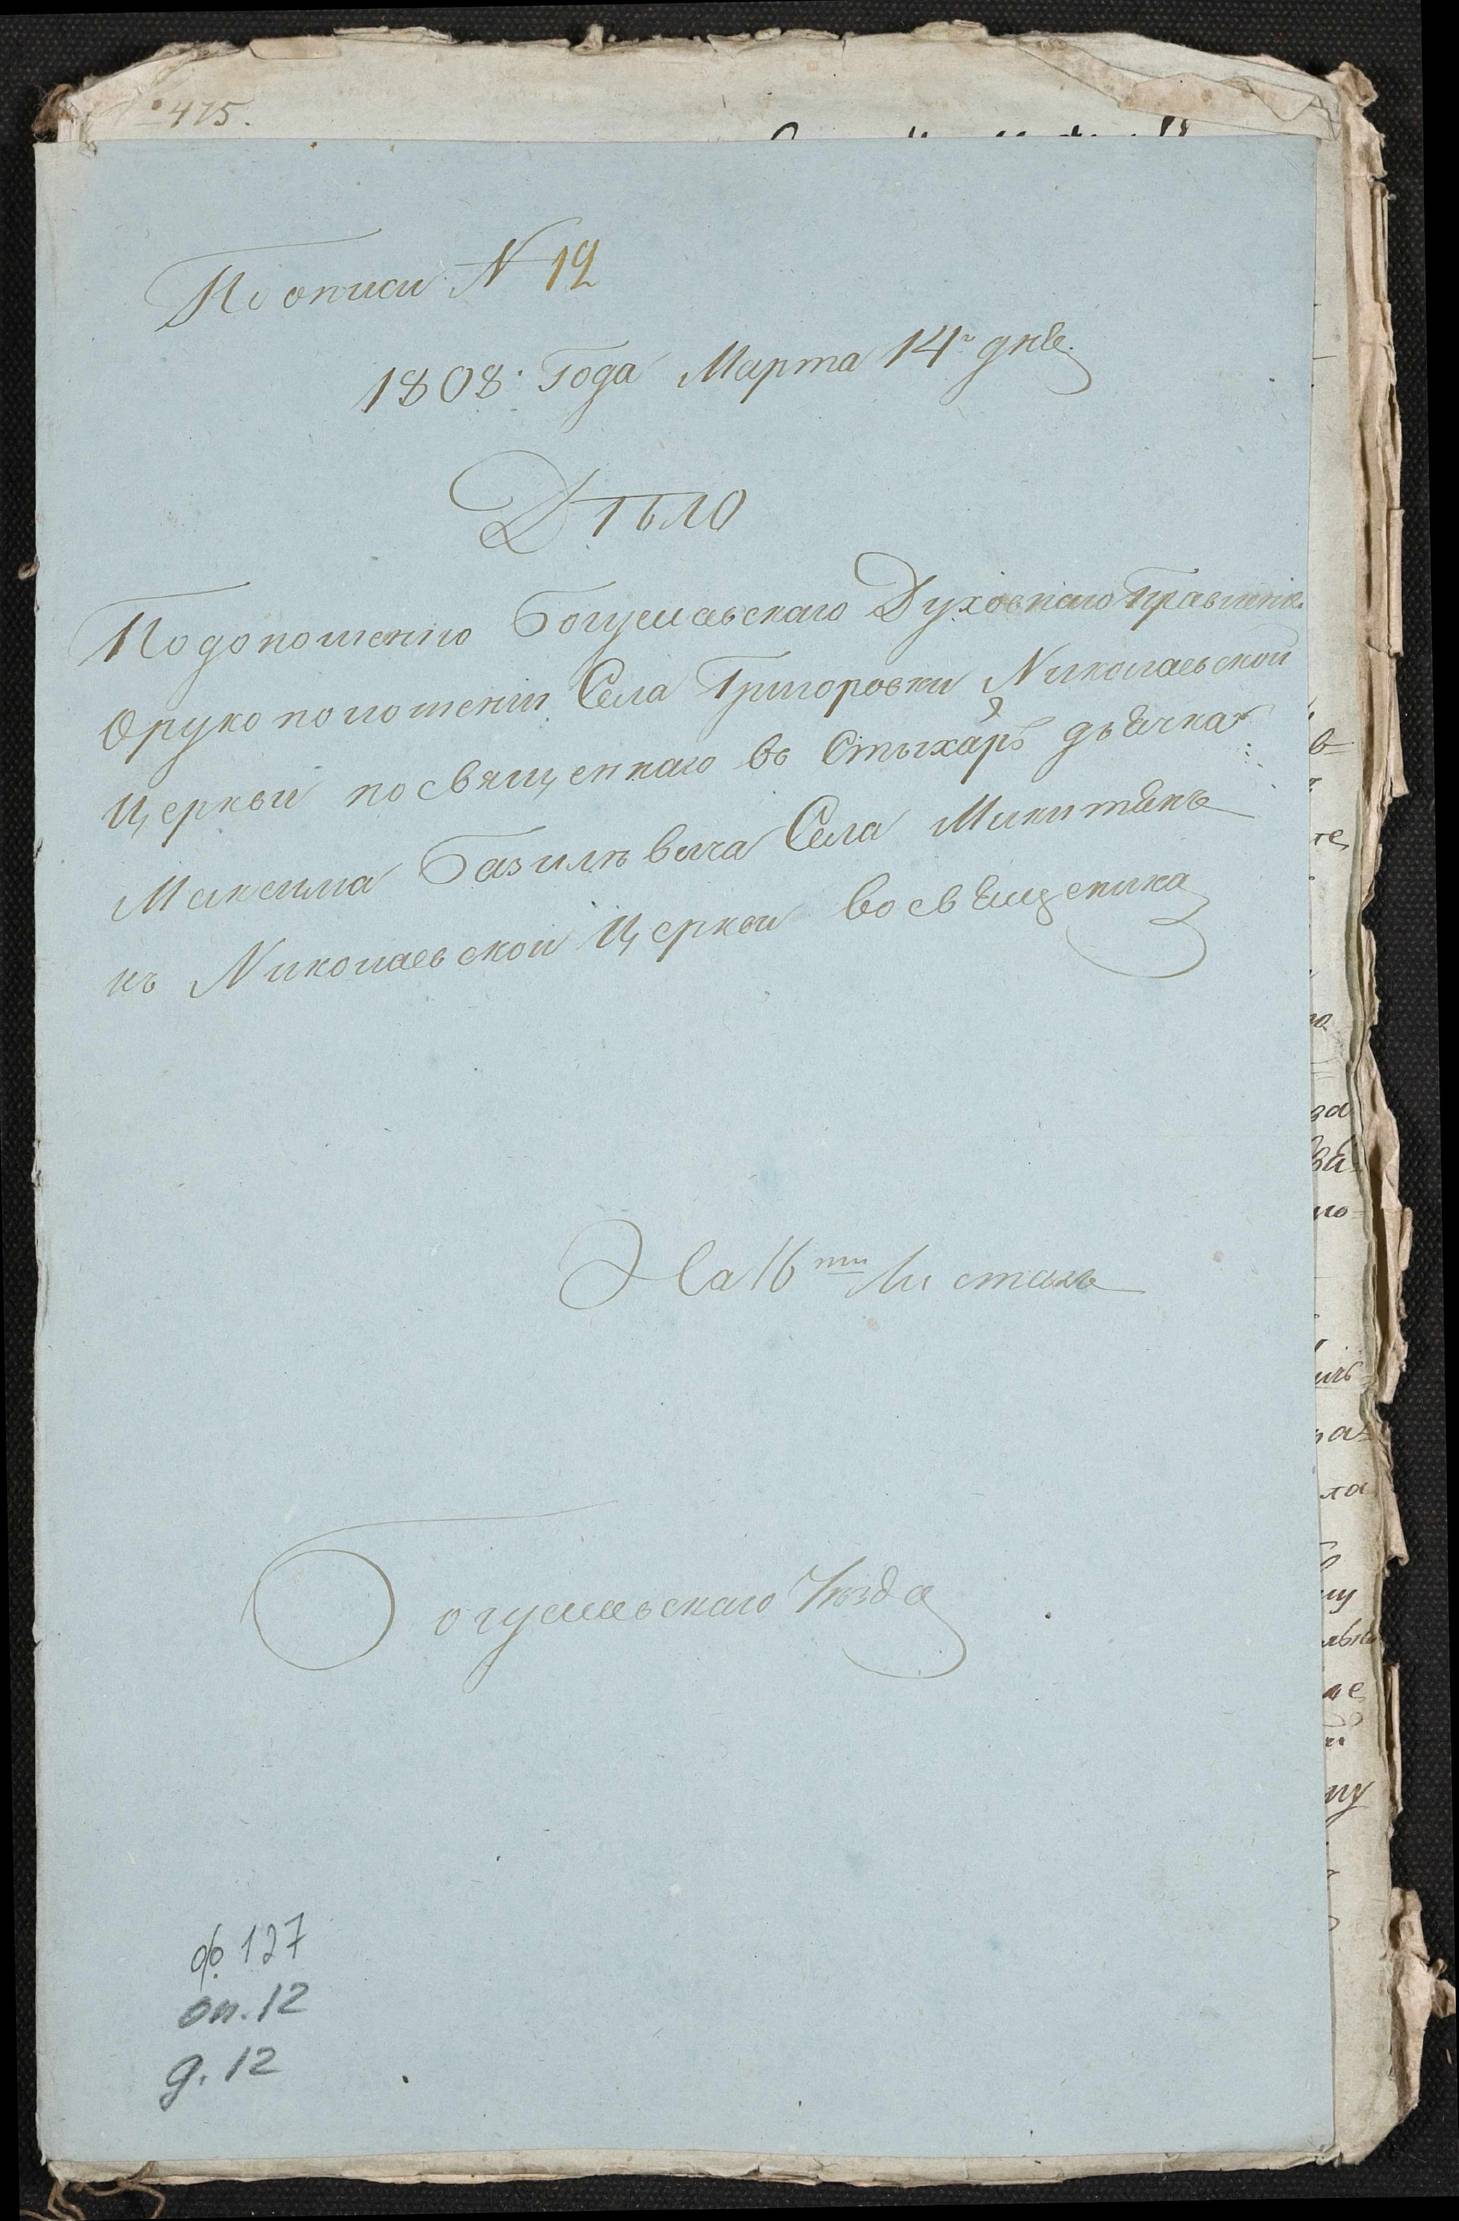 № 475.
По описи N 12
1808. Года Марта 14го дня.
Дѣло
По доношению Богуславскаго Духовнаго Правления
О рукоположении Села Григоровки Николаевской
Церкви посвященнаго въ Стыхаръ дьячка
Максима Базилевича Села Микитянъ
къ Николаевской Церкви во священика
На 16ти Листахъ
Богуславскаго Уѣзда
ф. 127
оп. 12
д. 12